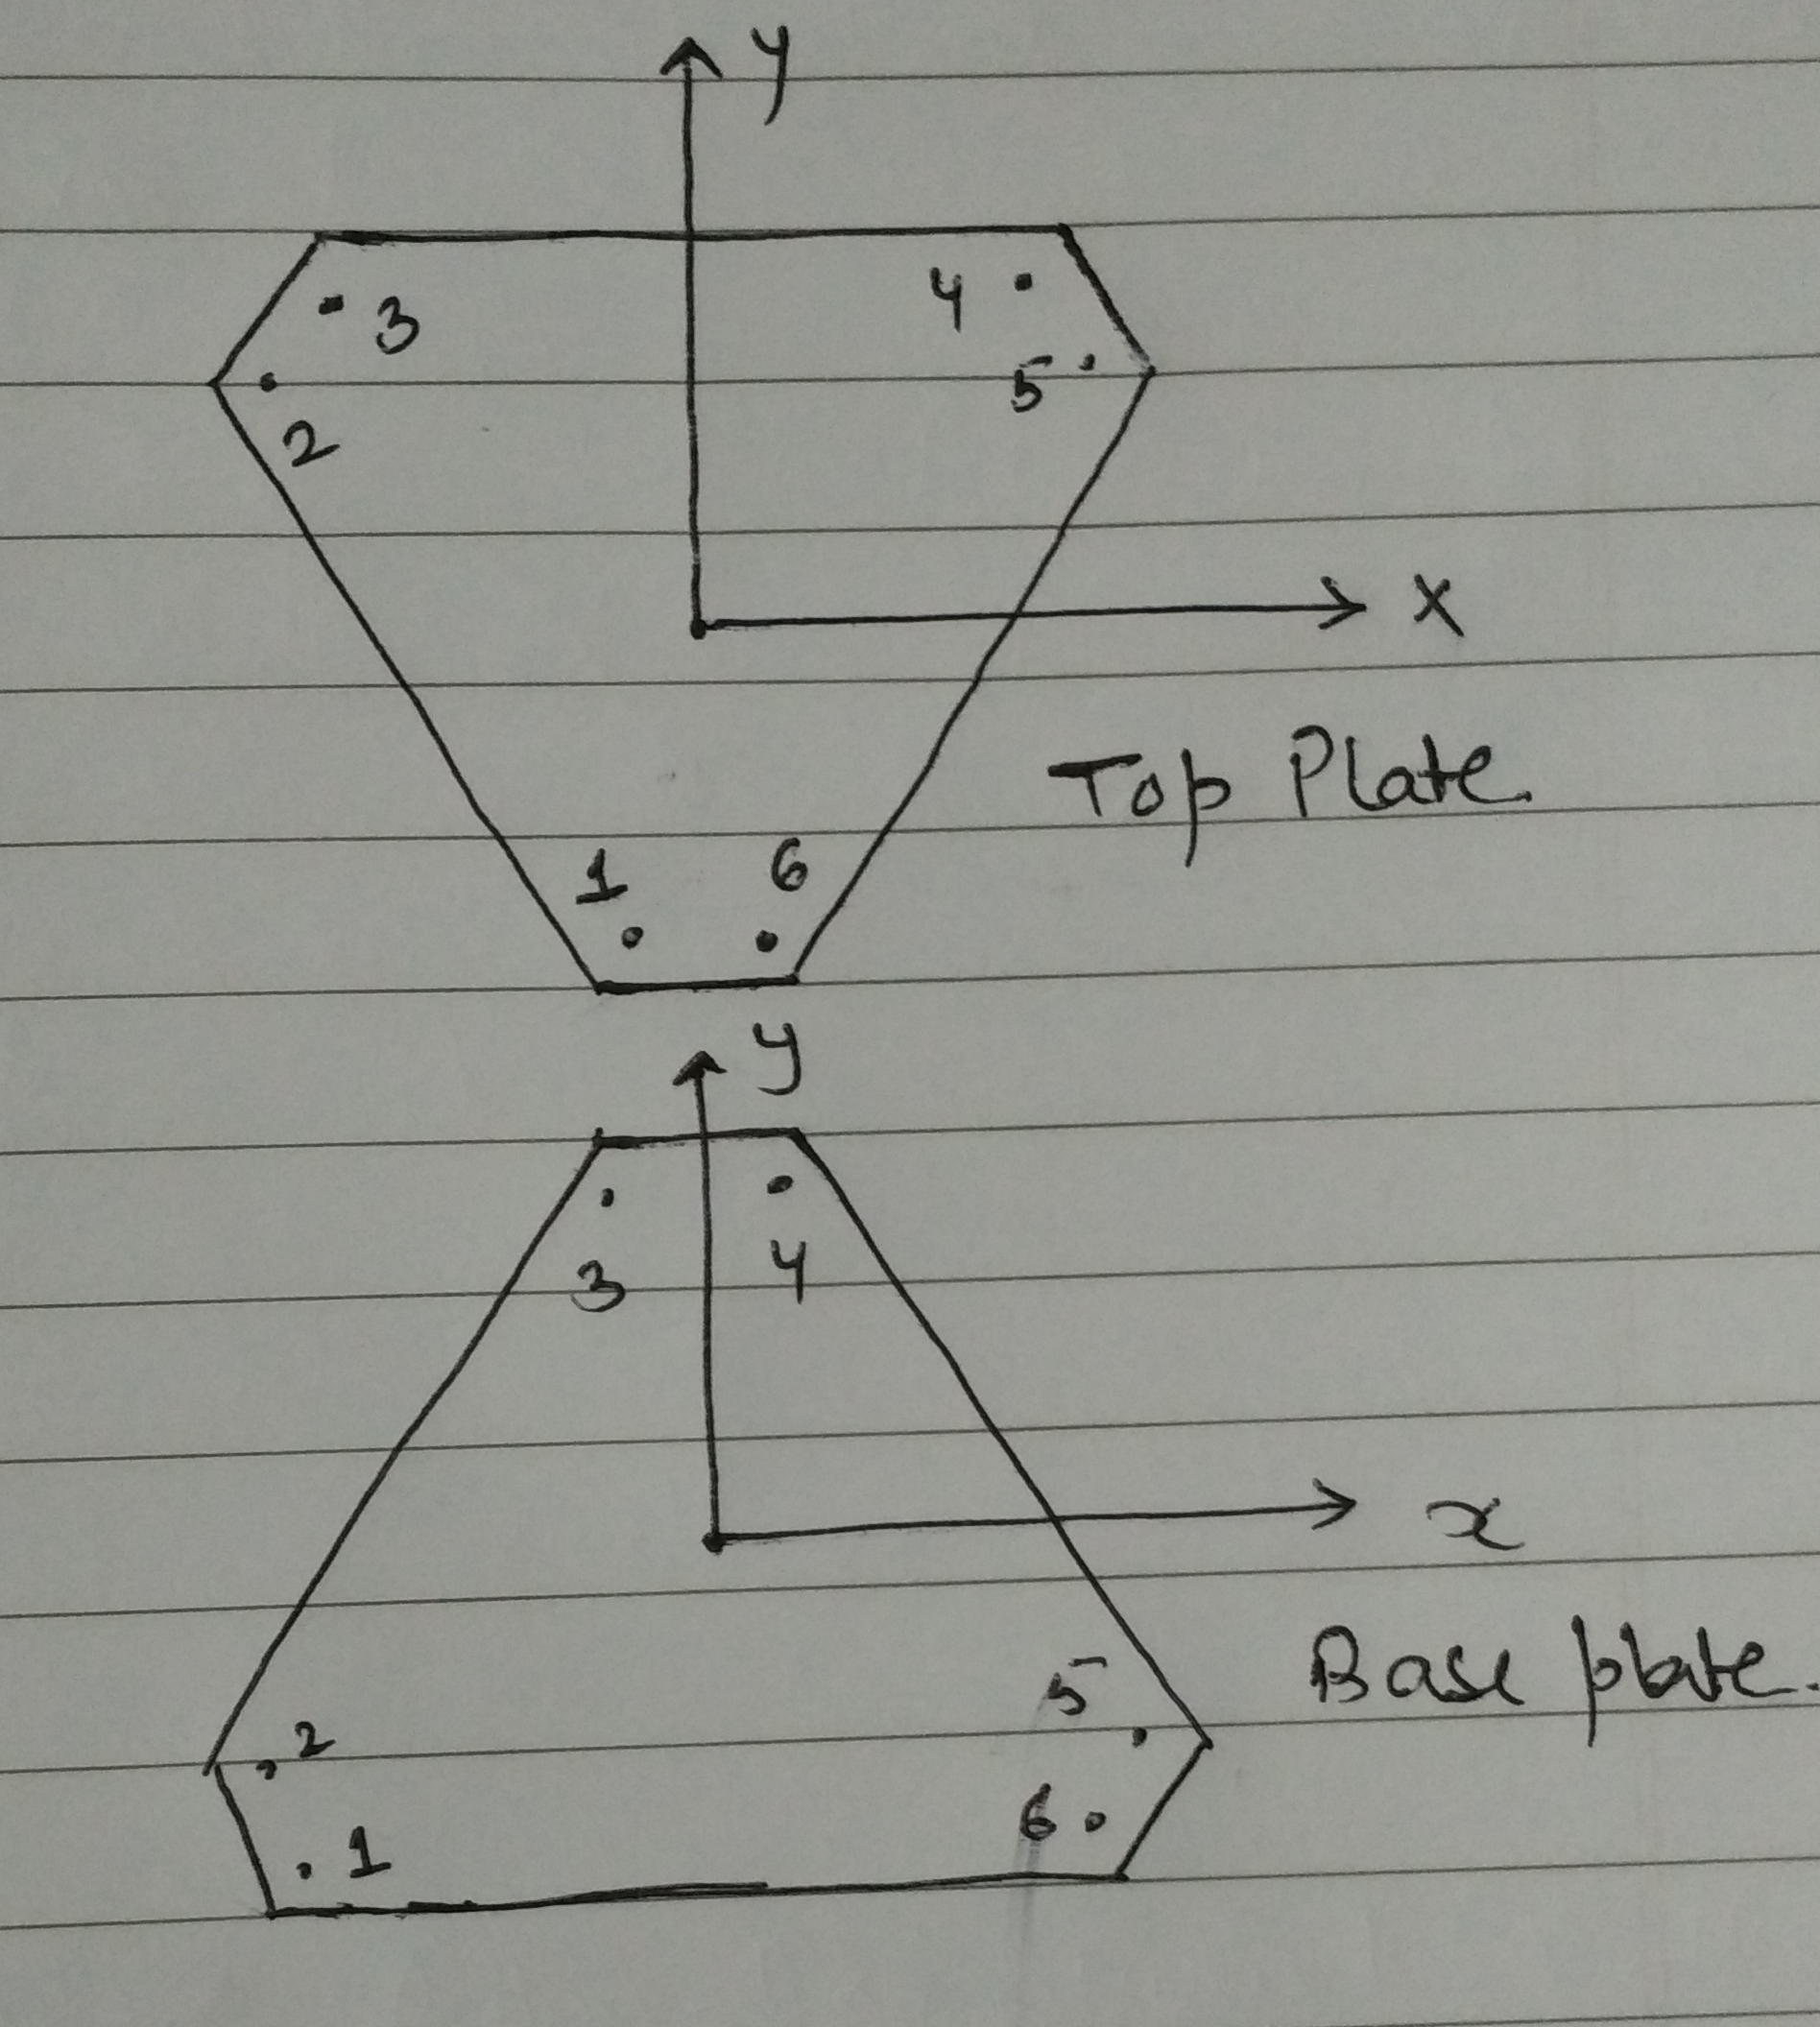 y
3
4
5
2
x
Top Plate.
1 6
y
3 4
x
Base plate.
5
2
6
1